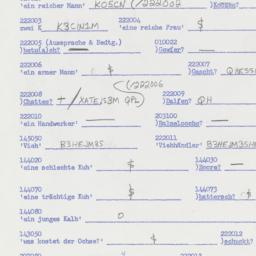 'ein reicher Mann' KO5CN (/222002
222003 222004
zwei K K3CIN1M 'eine reiche Frau' $
222005 (Aussprache & Bedtg.) 010022
)betu(a)cht? — )Gewfer? —
222006 222007
'ein armer Mann' $ )Gascht?
(/222006
222008 222009
)Chottes? +/XATEJS3M QPL) )Dalfen? QH
222010 203100
'ein Handwerker' —
145050 222011
'Vieh' B3HEJM85 'Viehhändler'
144020 144030
'eine schlechte Kuh' $ —
144070 144073
'eine trächtige Kuh' $ $
144080
'ein junges Kalb' O
143050 222012
'was kostet der Ochse?' $ )schuckt?